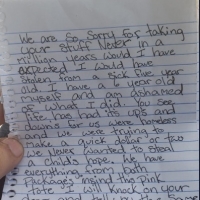 We are so sorry for taking
your stuff Never in a
million years would I have
expected I would have
stolen from a sick five year
old. I have a 6 year old
myself and am ashamed
of what I did. You see
life has had its ups and
downs for us were homeless
and we were trying to
make a quick dollar or two
we never wanted to steal
a child's hope. We have
everything from both
packages inside the pink
tote I will knock on your